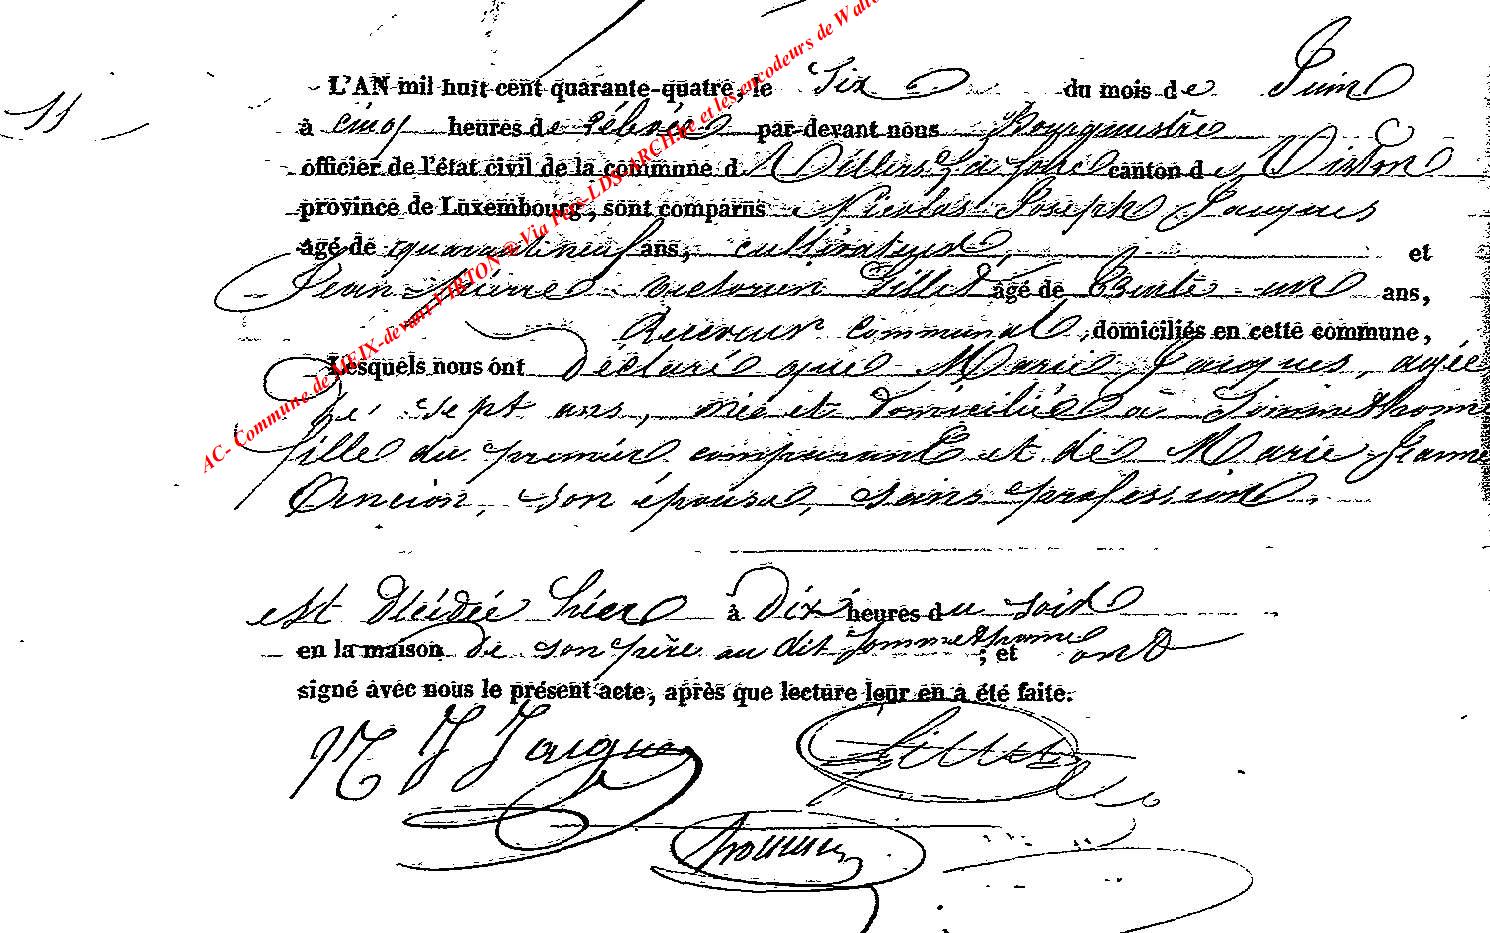 11
L'AN mil huit cent quarante-quatre, le Six du mois de Juin
à cinq heures de relevée par-devant nous Bourgmestre
officier de l'état civil de la commune d Villers la Loue canton d e Virton
province de Luxembourg, sont comparus Nicolas Joseph Jacques
âgé de quarante neuf ans, cultivateur, et
Jean Pierre Victorien Gillet âgé de Trente un ans,
Receveur communal, domiciliés en cette commune,
Lesquels nous ont déclaré que Marie Jacques, agée
de sept ans, née et domiciliée à Sommethonne
fille du premier comparant et de Marie Jeanne
son épouse, sans profession.
est décédée hier à dix heures du soir
en la maison de son père au dit Sommethonne ; et ont
signé avec nous le présent acte, après que lecture leur en a été faite.
N J Jacques Gillet
AC- Commune de MEIX-devant-VIRTON @ Via Pers-LDS-ARCH.be et les encodeurs de Wallo